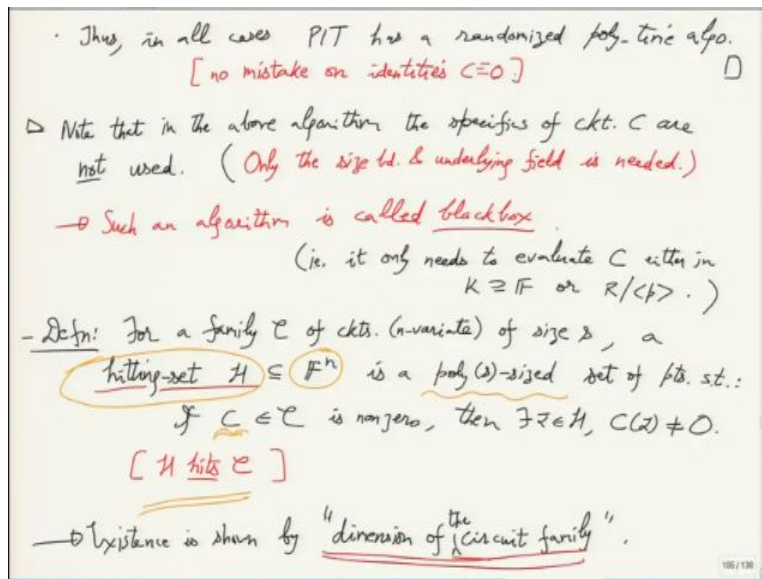 · Thus, in all cases PIT has a randomized poly-time algo.
[no mistake on identities C≡0.] □
▷ Note that in the above algorithm the specifics of ckt. C are
not used. (Only the size bd. & underlying field is needed.)
→ Such an algorithm is called blackbox.
(ie. it only needs to evaluate C either in
K ⊇ F or R/<p>.)
- Defn: For a family C of ckts. (n-variate) of size s, a
hitting-set H ⊆ F^n is a poly(s)-sized set of pts. s.t.:
If C ∈ C is nonzero, then ∃z∈H, C(z) ≠ 0.
[H hits C]
→ Existence is shown by "dimension of the circuit family".
105 / 138